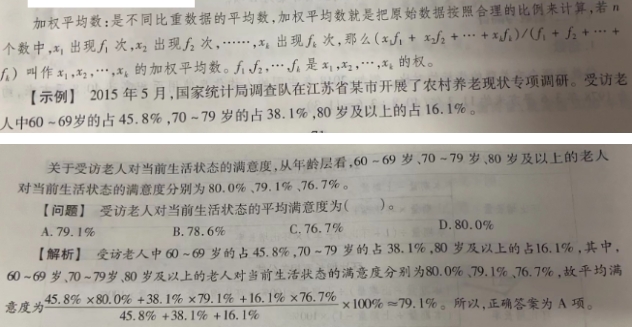 加权平均数:是不同比重数据的平均数,加权平均数就是把原始数据按照合理的比例来计算,若 n
个数中,x₁ 出现 f₁ 次,x₂ 出现 f₂ 次,……,xₖ 出现 fₖ 次,那么(x₁f₁ + x₂f₂ + … + xₖfₖ)/(f₁ + f₂ + … +
fₖ) 叫作 x₁,x₂,…,xₖ 的加权平均数。f₁,f₂,…fₖ 是 x₁,x₂,…,xₖ 的权。
【示例】 2015 年 5 月,国家统计局调查队在江苏省某市开展了农村养老现状专项调研。受访老
人中60~69岁的占 45.8%,70~79 岁的占 38.1%,80 岁及以上的占 16.1%。
关于受访老人对当前生活状态的满意度,从年龄层看,60~69 岁、70~79 岁、80 岁及以上的老人
对当前生活状态的满意度分别为 80.0%、79.1%、76.7%。
【问题】 受访老人对当前生活状态的平均满意度为( )。
A. 79.1% B. 78.6% C. 76.7% D. 80.0%
【解析】 受访老人中 60~69 岁的占 45.8%,70~79 岁的占 38.1%,80 岁及以上的占16.1%,其中,
60~69 岁、70~79岁、80 岁及以上的老人对当前生活状态的满意度分别为80.0%、79.1%、76.7%,故平均满
意度为(45.8%×80.0%+38.1%×79.1%+16.1%×76.7%)/(45.8%+38.1%+16.1%)×100%≈79.1%。所以,正确答案为 A 项。